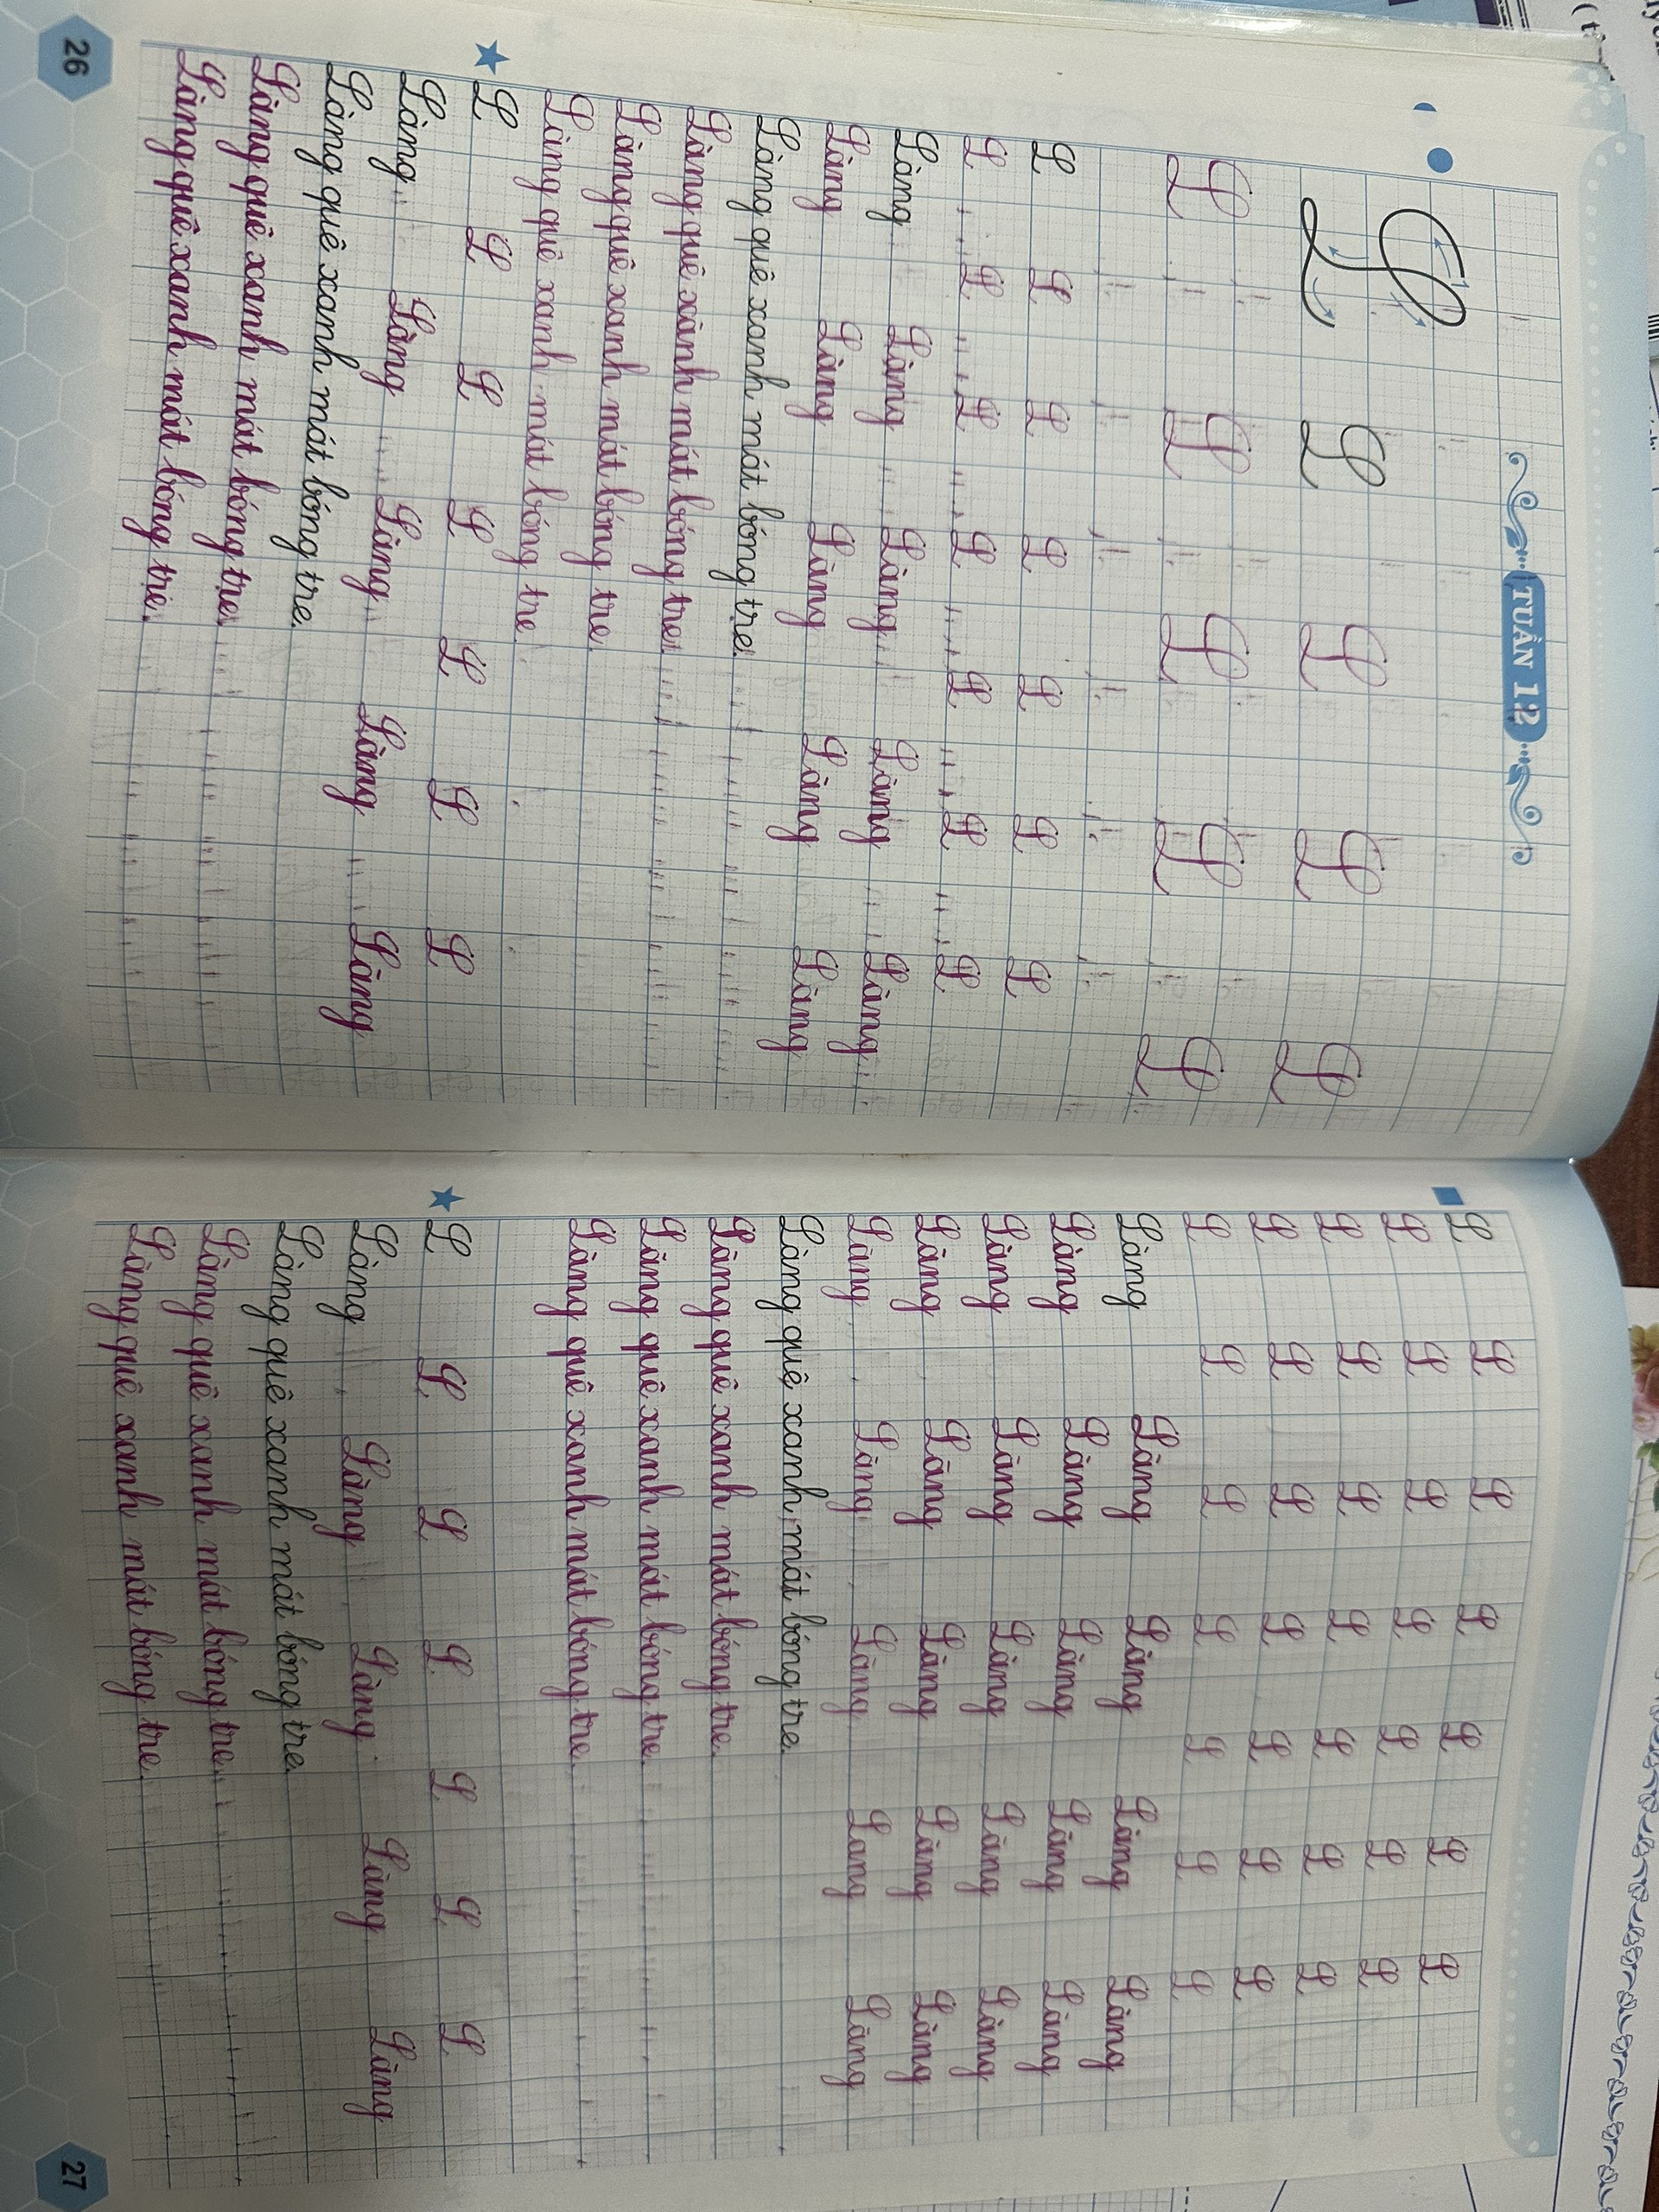 TUẦN 12
L L L L L
L L L L L
L L L L L L L
L L L L L L L
Làng Làng Làng Làng Làng
Làng Làng Làng Làng Làng
Làng quê xanh mát bóng tre.
Làng quê xanh mát bóng tre.
Làng quê xanh mát bóng tre.
Làng quê xanh mát bóng tre.
L L L L L L L
Làng Làng Làng Làng Làng
Làng quê xanh mát bóng tre.
Làng quê xanh mát bóng tre.
Làng quê xanh mát bóng tre.
26
L L L L L L L
L L L L L L L
L L L L L L L
L L L L L L L
L L L L L L L
Làng Làng Làng Làng Làng
Làng Làng Làng Làng Làng
Làng Làng Làng Làng Làng
Làng Làng Làng Làng Làng
Làng Làng Làng Làng Làng
Làng quê xanh mát bóng tre.
Làng quê xanh mát bóng tre.
Làng quê xanh mát bóng tre.
Làng quê xanh mát bóng tre.
L L L L L L L
Làng Làng Làng Làng Làng
Làng quê xanh mát bóng tre.
Làng quê xanh mát bóng tre.
Làng quê xanh mát bóng tre.
27